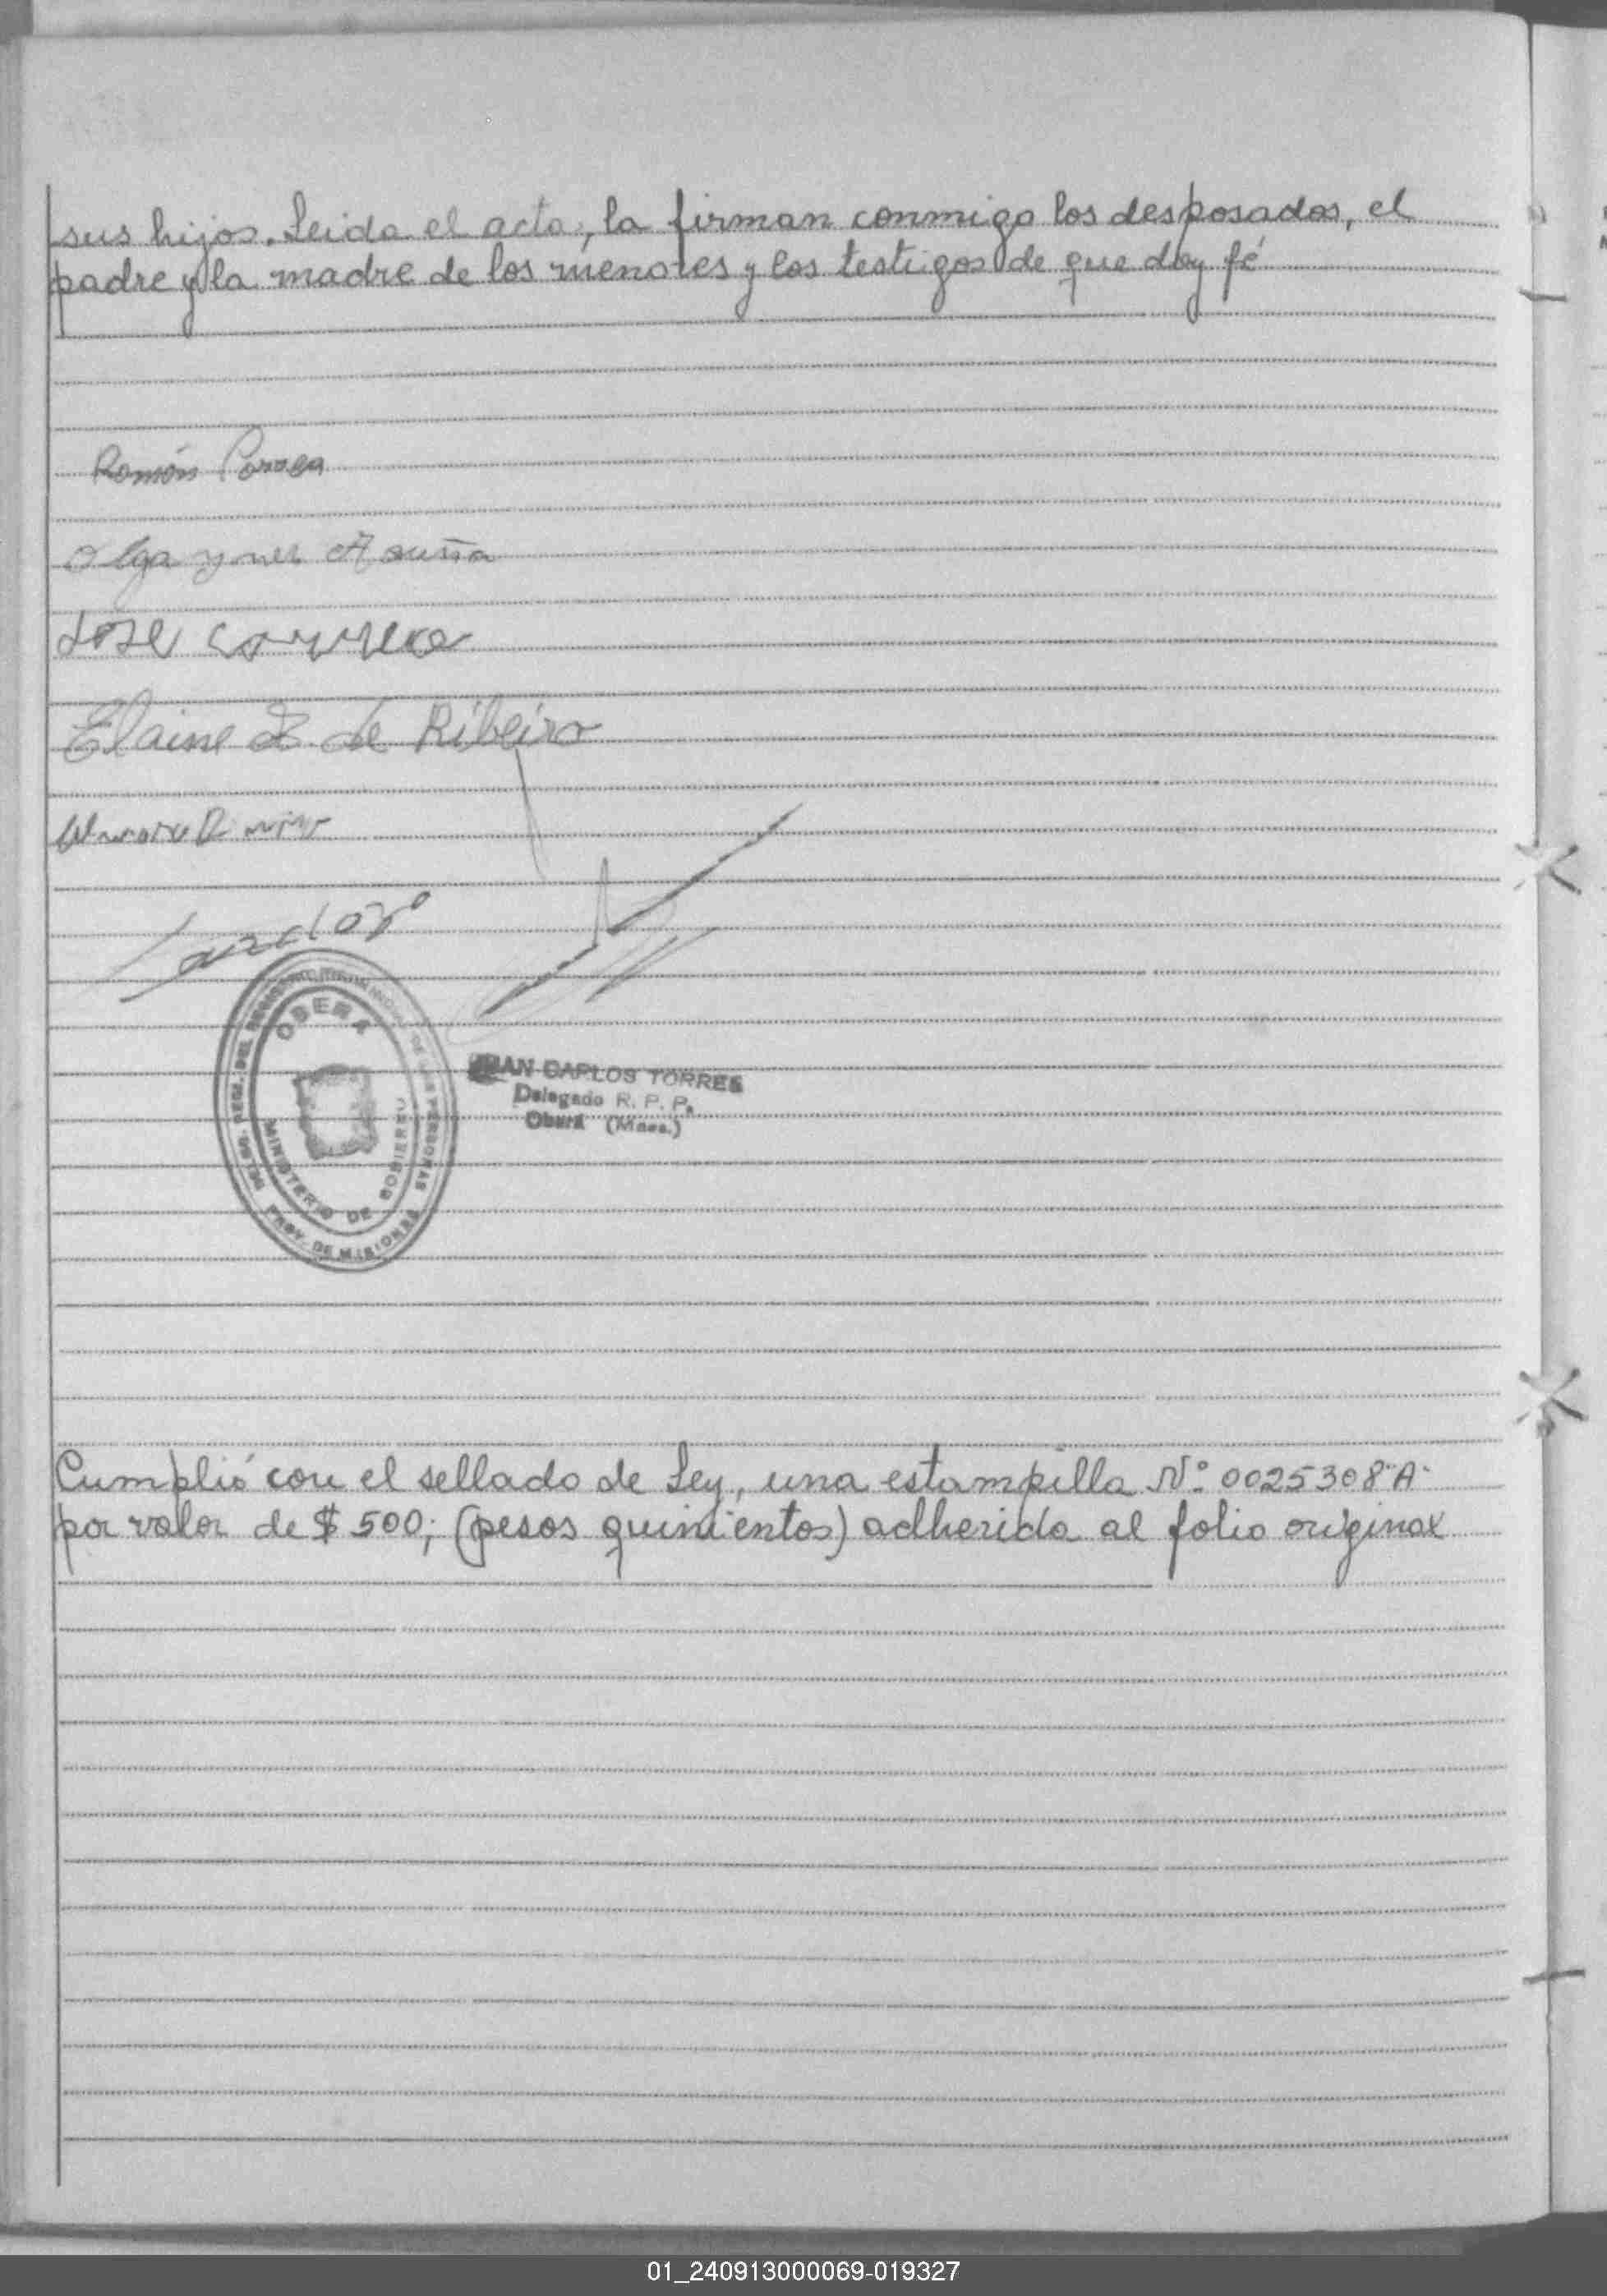 sus hijos. Leida el acta, la firman conmigo los desposados, el
padre y la madre de los menores y los testigos de que doy fé
Román Correa
Olga ynes Acuña
Jose correa
Elaine Z. de Ribeiro
OBERA
MINISTERIO DE GOBIERNO
PROV. DE MISIONES
DE LAS PERSONAS
JUAN CARLOS TORRES
Delegado R. P. P.
Oberá (Mnes.)
Cumplió con el sellado de Ley, una estampilla Nº 0025308"A"
por valor de $ 500; (pesos quinientos) adherida al folio original
01_240913000069-019327